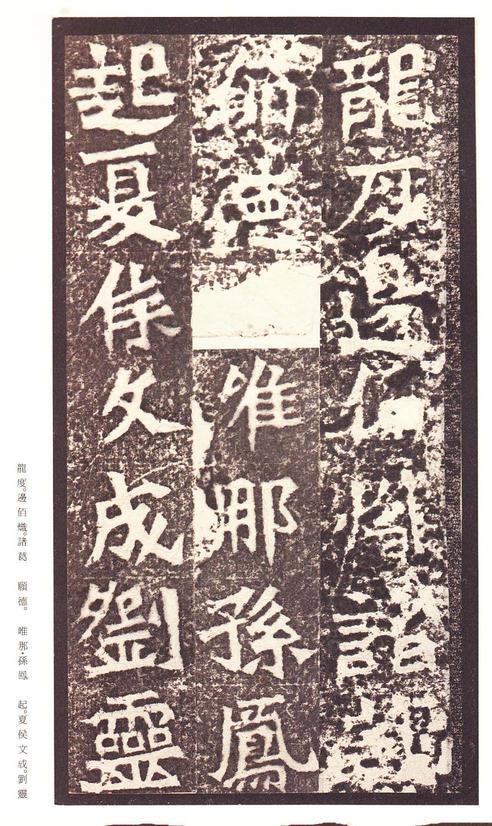 龍度邊佰熾諸葛
願德 唯那孫鳳
起夏侯文成劉靈
龍度。邊佰熾。諸葛 願德。 唯那·孫鳳 起。夏侯文成。劉靈